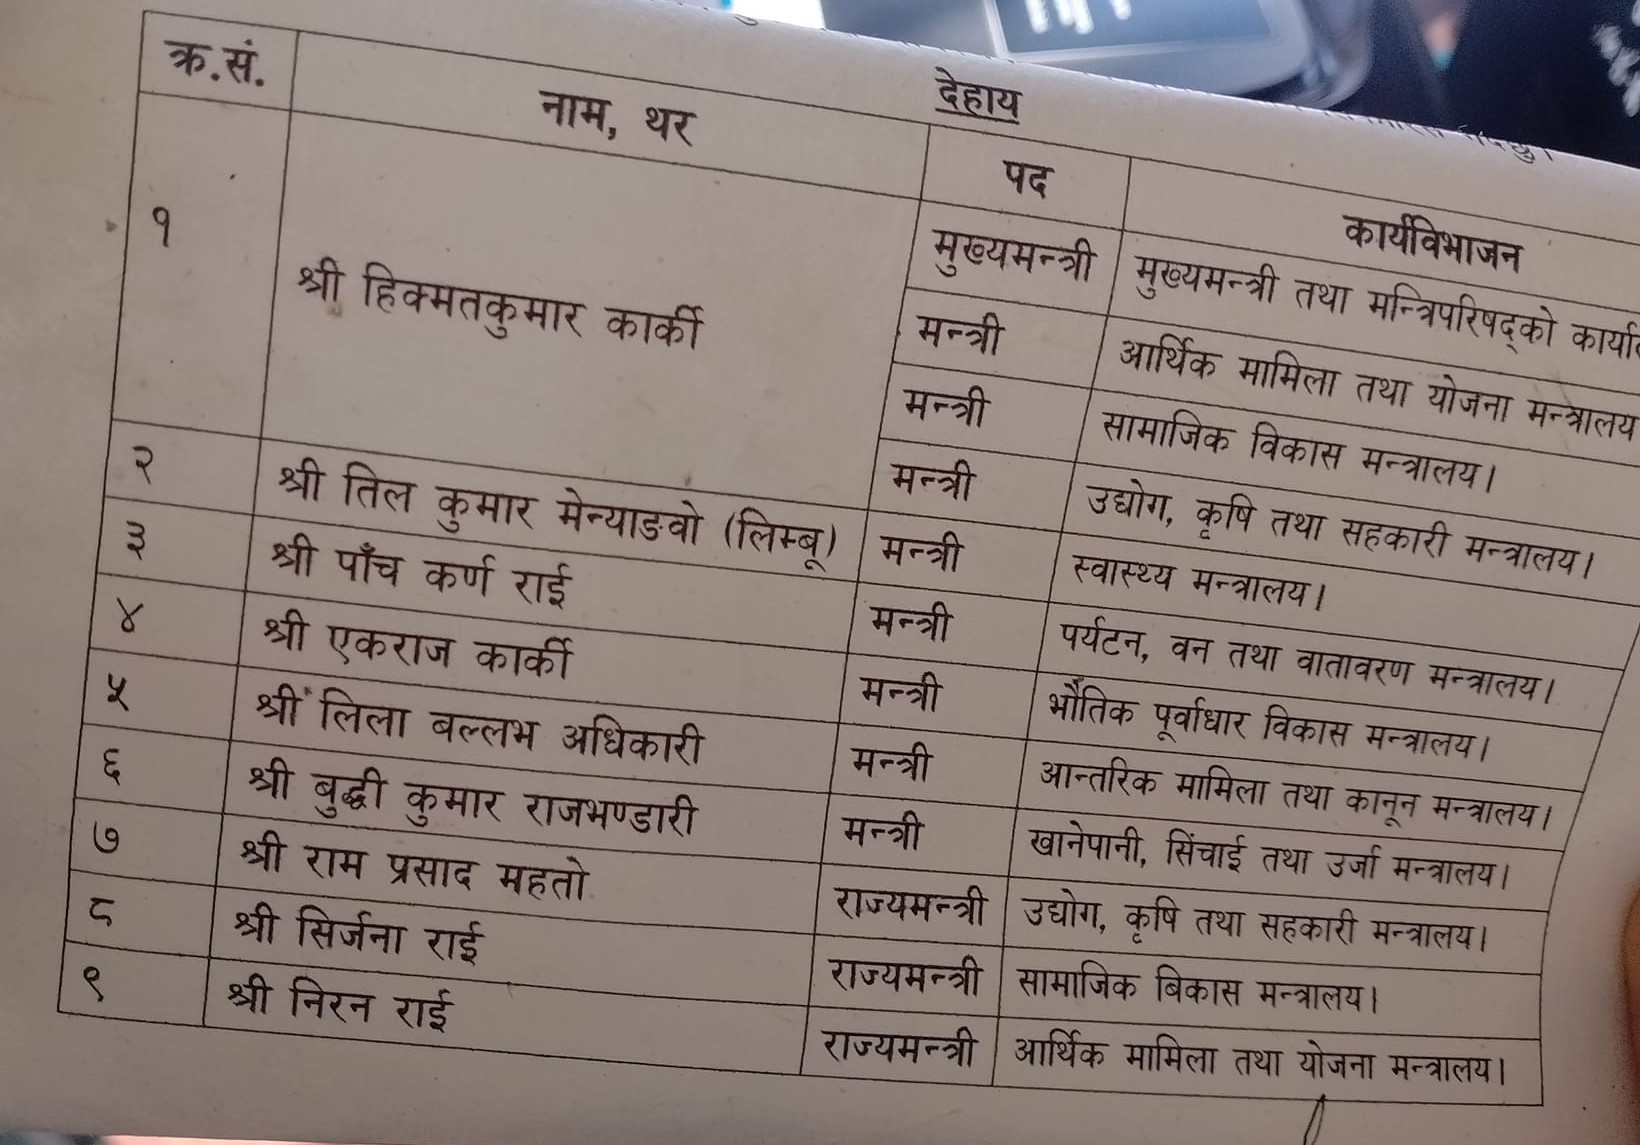 देहाय
क्र.सं. नाम, थर पद कार्यविभाजन
१ श्री हिक्मतकुमार कार्की मुख्यमन्त्री मुख्यमन्त्री तथा मन्त्रिपरिषद्को
मन्त्री आर्थिक मामिला तथा योजना मन्त्रालय
मन्त्री सामाजिक विकास मन्त्रालय।
मन्त्री उद्योग, कृषि तथा सहकारी मन्त्रालय।
२ श्री तिल कुमार मेन्याङवो (लिम्बू) मन्त्री स्वास्थ्य मन्त्रालय।
३ श्री पाँच कर्ण राई मन्त्री पर्यटन, वन तथा वातावरण मन्त्रालय।
४ श्री एकराज कार्की मन्त्री भौतिक पूर्वाधार विकास मन्त्रालय।
५ श्री लिला बल्लभ अधिकारी मन्त्री आन्तरिक मामिला तथा कानून मन्त्रालय।
६ श्री बुद्धी कुमार राजभण्डारी मन्त्री खानेपानी, सिंचाई तथा उर्जा मन्त्रालय।
७ श्री राम प्रसाद महतो राज्यमन्त्री उद्योग, कृषि तथा सहकारी मन्त्रालय।
८ श्री सिर्जना राई राज्यमन्त्री सामाजिक बिकास मन्त्रालय।
९ श्री निरन राई राज्यमन्त्री आर्थिक मामिला तथा योजना मन्त्रालय।